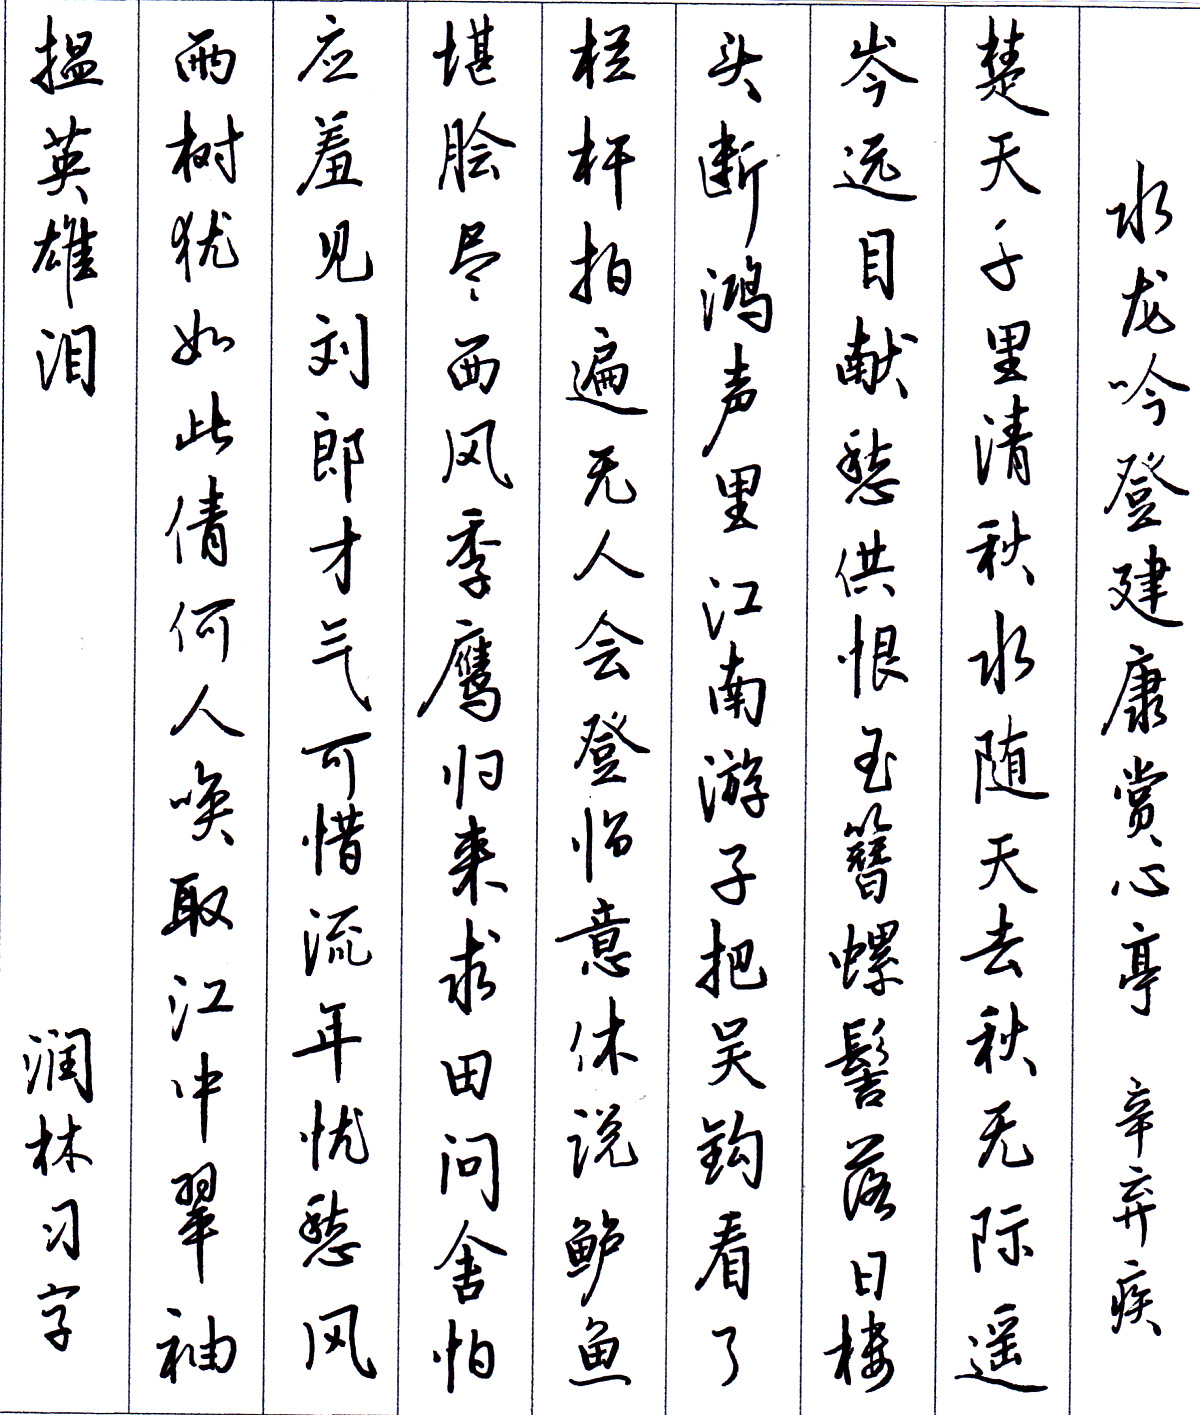 水龙吟登建康赏心亭 辛弃疾
楚天千里清秋水随天去秋无际遥
岑远目献愁供恨玉簪螺髻落日楼
头断鸿声里江南游子把吴钩看了
栏杆拍遍无人会登临意休说鲈鱼
堪脍尽西风季鹰归来求田问舍怕
应羞见刘郎才气可惜流年忧愁风
雨树犹如此倩何人唤取江中翠袖
揾英雄泪 润林习字